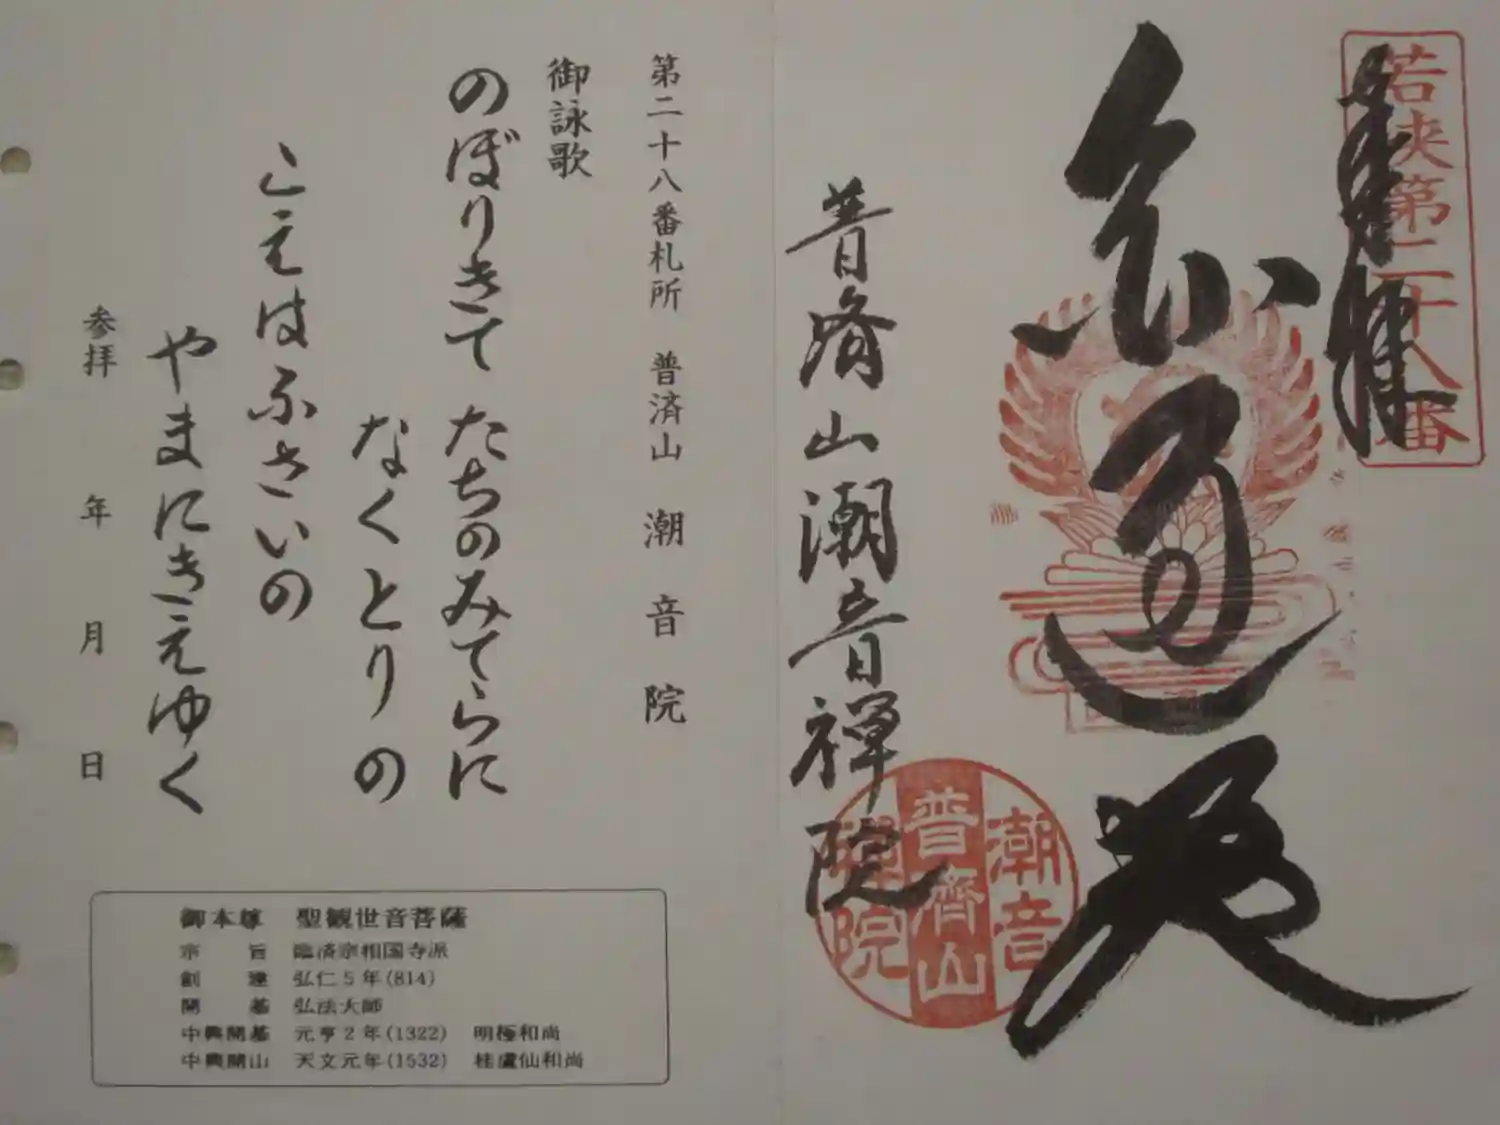 奉拝
若狭第二十八番
普済山潮音禅院
潮音
普濟山
禅院
第二十八番札所 普済山 潮音院
御詠歌
のぼりきて たちのみてらに
なくとりの
こえはふさいの
やまにきえゆく
参拝 年 月 日
御本尊 聖観世音菩薩
宗旨 臨済宗相国寺派
創建 弘仁5年(814)
開基 弘法大師
中興開基 元亨2年(1322) 明極和尚
中興開山 天文元年(1532) 桂盧仙和尚